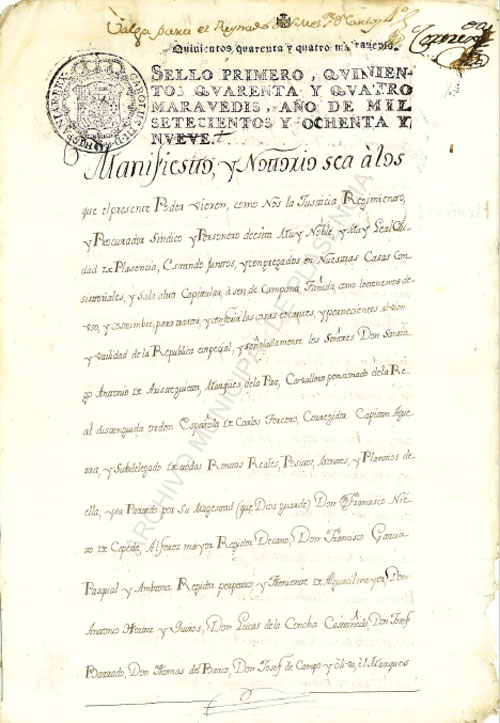 Valga para el Reynado de
Quinientos quarenta y quatro maravedis.
SELLO PRIMERO, QVINIEN-
TOS QVARENTA Y QVATRO
MARAVEDIS, AÑO DE MIL
SETECIENTOS Y OCHENTA Y
NVEVE.
Manifiesto, y Nottorio sea à los
que el presente Poder vieren, como Nos la Justicia, Regimiento,
y Procurador Sindico y Personero de esta Muy Noble, y Muy Leal Ciu-
dad de Plasencia, estando juntos, y congregados en Nuestras Casas Con
sistoriales, y Sala alta Capitular, à son de Campana tañida, como lo tenemos de
vso, y costumbre, para tratar, y conferir las cosas tocantes, y pertenecientes al vien
y vtilidad de la Republica especial, y señaladamente los Señores Don Santia-
go Antonio de Marques de la Paz, Cavallero pensionado de la Re-
al distinguida orden Española de Carlos Tercero, Corregidor Capitan Aguer
ra, y Subdelegado de todas Rentas Reales, Positos, Montes, y Plantios de
ella, y su Partido por Su Magestad (que Dios guarde) Don Francisco Nie
to de Cepeda, Alferez mayor Regidor Decano, Don Francisco Garcia
Pasqual y Ambrona Regidor perpetuo, y Theniente de Alguacil mayor, Don
Antonio y Quiros, Don Lucas de la Concha Don Josef
Barrado, Don Thomas del Barco, Don Josef de Campo y el Marques
ARCHIVO MUNICIPAL DE PLASENCIA